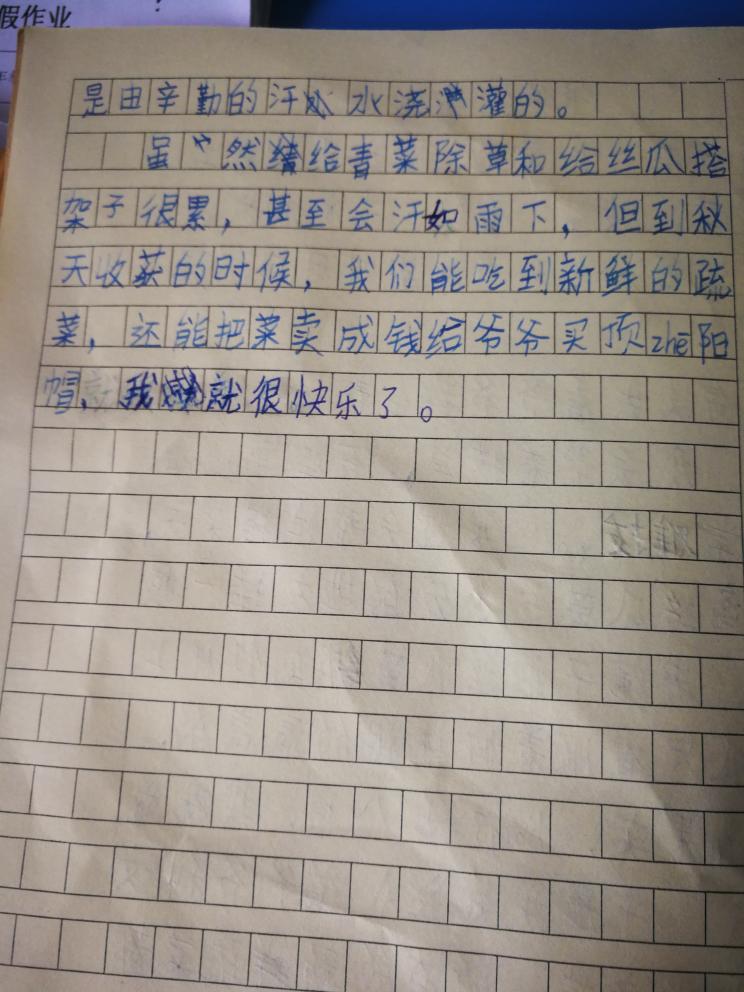 假作业
是由辛勤的汗水浇灌的。
虽然给青菜除草和给丝瓜搭
架子很累，甚至会汗如雨下，但到秋
天收获的时候，我们能吃到新鲜的疏
菜，还能把菜卖成钱给爷爷买顶zhē阳
帽，我就很快乐了。